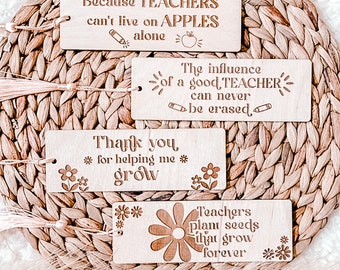 Because TEACHERS
can't live on APPLES
alone
The influence
of a good TEACHER
can never
be erased
Thank you
for helping me
grow
Teachers
plant seeds
that grow
forever